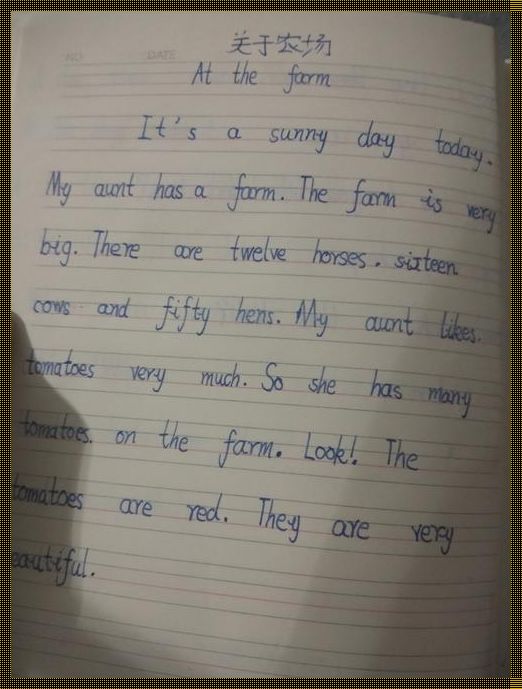 NO
DATE
关于农场
At the farm
It's a sunny day today.
My aunt has a farm. The farm is very
big. There are twelve horses. sixteen
cows and fifty hens. My aunt likes.
tomatoes very much. So she has many
tomatoes. on the farm. Look! The
tomatoes are red. They are very
eautiful.